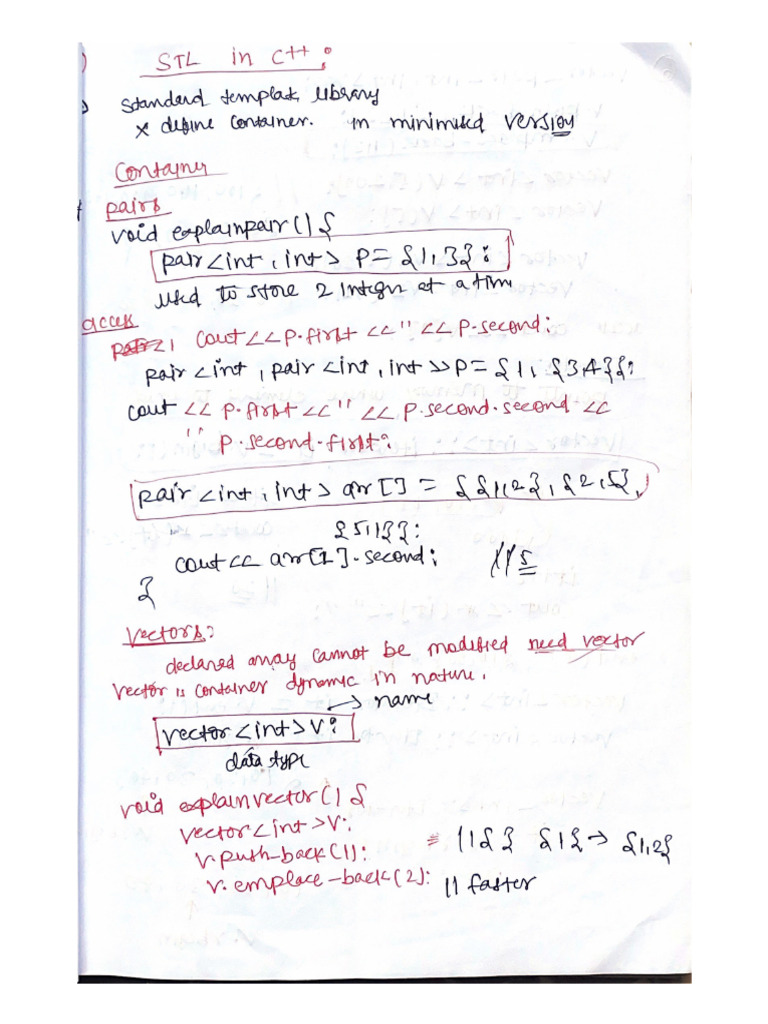 STL in C++:
Standard template library
x define container. in minimised version
Container
pairs
void explainpair() {
pair<int, int> P = {1,3};
used to store 2 integer at a time
access
cout<<P.first <<" <<P.second;
pair <int, pair <int, int>> P = {1, {3,4}};
cout << P.first <<" << P.second.second <<
" P.second.first;
pair <int, int> arr[] = {{1,2}, {2,5},
{5,1}};
cout<< arr[1].second; //5
}
Vectors:
declared array cannot be modified need vector
Vector is container dynamic in nature.
→ name
vector<int> V;
data type
void explainvector() {
vector<int>V;
v.push-back(1); = //{ } {1} → {1,2}
v. emplace-back(2); // faster